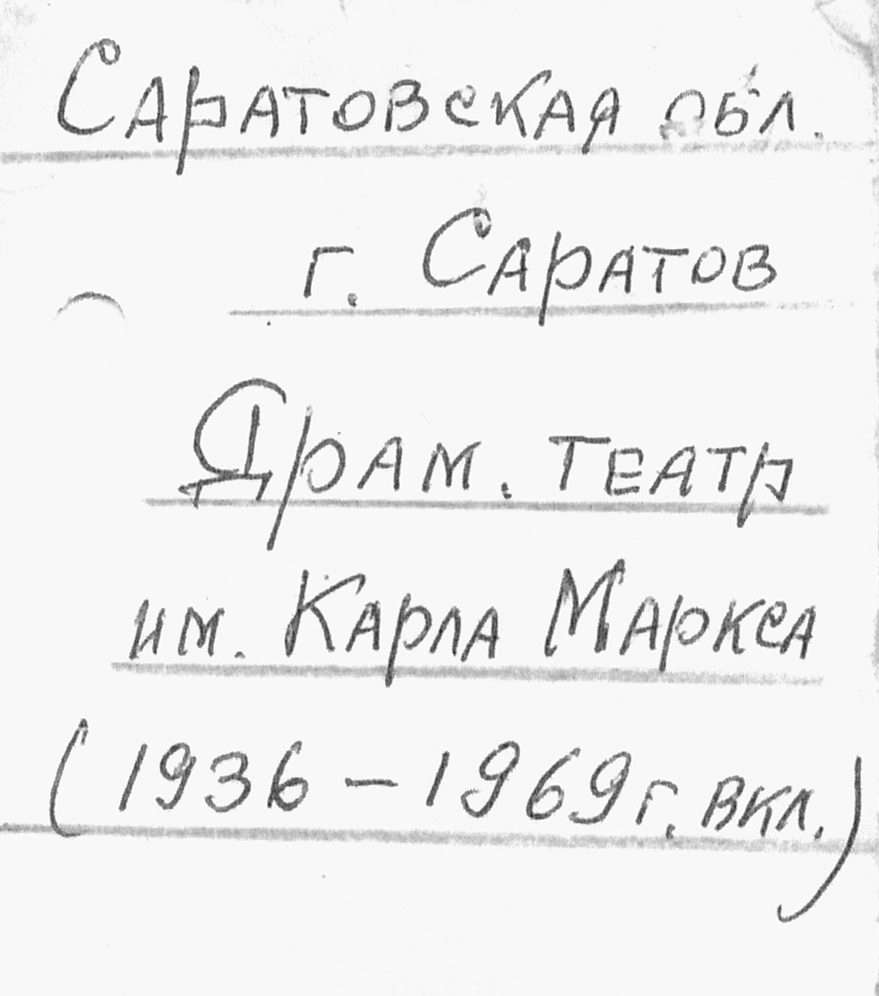 Саратовская обл.
г. Саратов
Драм. театр
им. Карла Маркса
(1936 – 1969 г. вкл.)